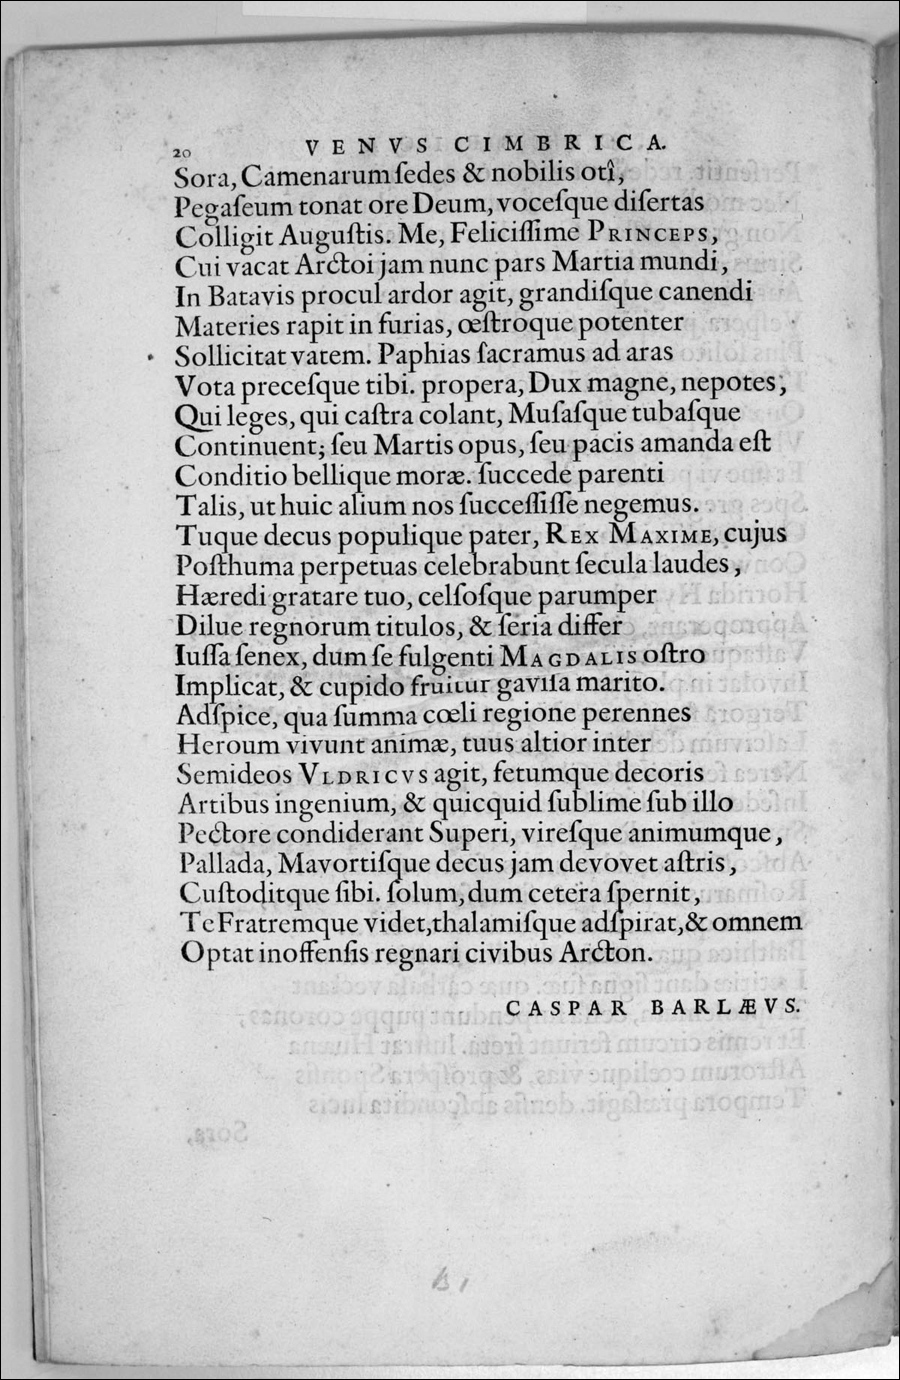 20 VENVS CIMBRICA.
Sora, Camenarum ſedes & nobilis otî,
Pegaſeum tonat ore Deum, voceſque diſertas
Colligit Auguſtis. Me, Feliciſſime PRINCEPS,
Cui vacat Arctoi jam nunc pars Martia mundi,
In Batavis procul ardor agit, grandiſque canendi
Materies rapit in furias, œſtroque potenter
Sollicitat vatem. Paphias ſacramus ad aras
Vota preceſque tibi. propera, Dux magne, nepotes,
Qui leges, qui caſtra colant, Muſaſque tubaſque
Continuent; ſeu Martis opus, ſeu pacis amanda eſt
Conditio bellique moræ. ſuccede parenti
Talis, ut huic alium nos ſucceſſiſſe negemus.
Tuque decus populique pater, REX MAXIME, cujus
Poſthuma perpetuas celebrabunt ſecula laudes,
Hæredi gratare tuo, celſoſque parumper
Dilue regnorum titulos, & ſeria differ
Iuſſa ſenex, dum ſe fulgenti MAGDALIS oſtro
Implicat, & cupido fruitur gaviſa marito.
Adſpice, qua ſumma cœli regione perennes
Heroum vivunt animæ, tuus altior inter
Semideos VLDRICVS agit, fetumque decoris
Artibus ingenium, & quicquid ſublime ſub illo
Pectore condiderant Superi, vireſque animumque,
Pallada, Mavortiſque decus jam devovet aſtris,
Cuſtoditque ſibi. ſolum, dum cetera ſpernit,
Te Fratremque videt, thalamiſque adſpirat, & omnem
Optat inoffenſis regnari civibus Arcton.
CASPAR BARLÆVS.